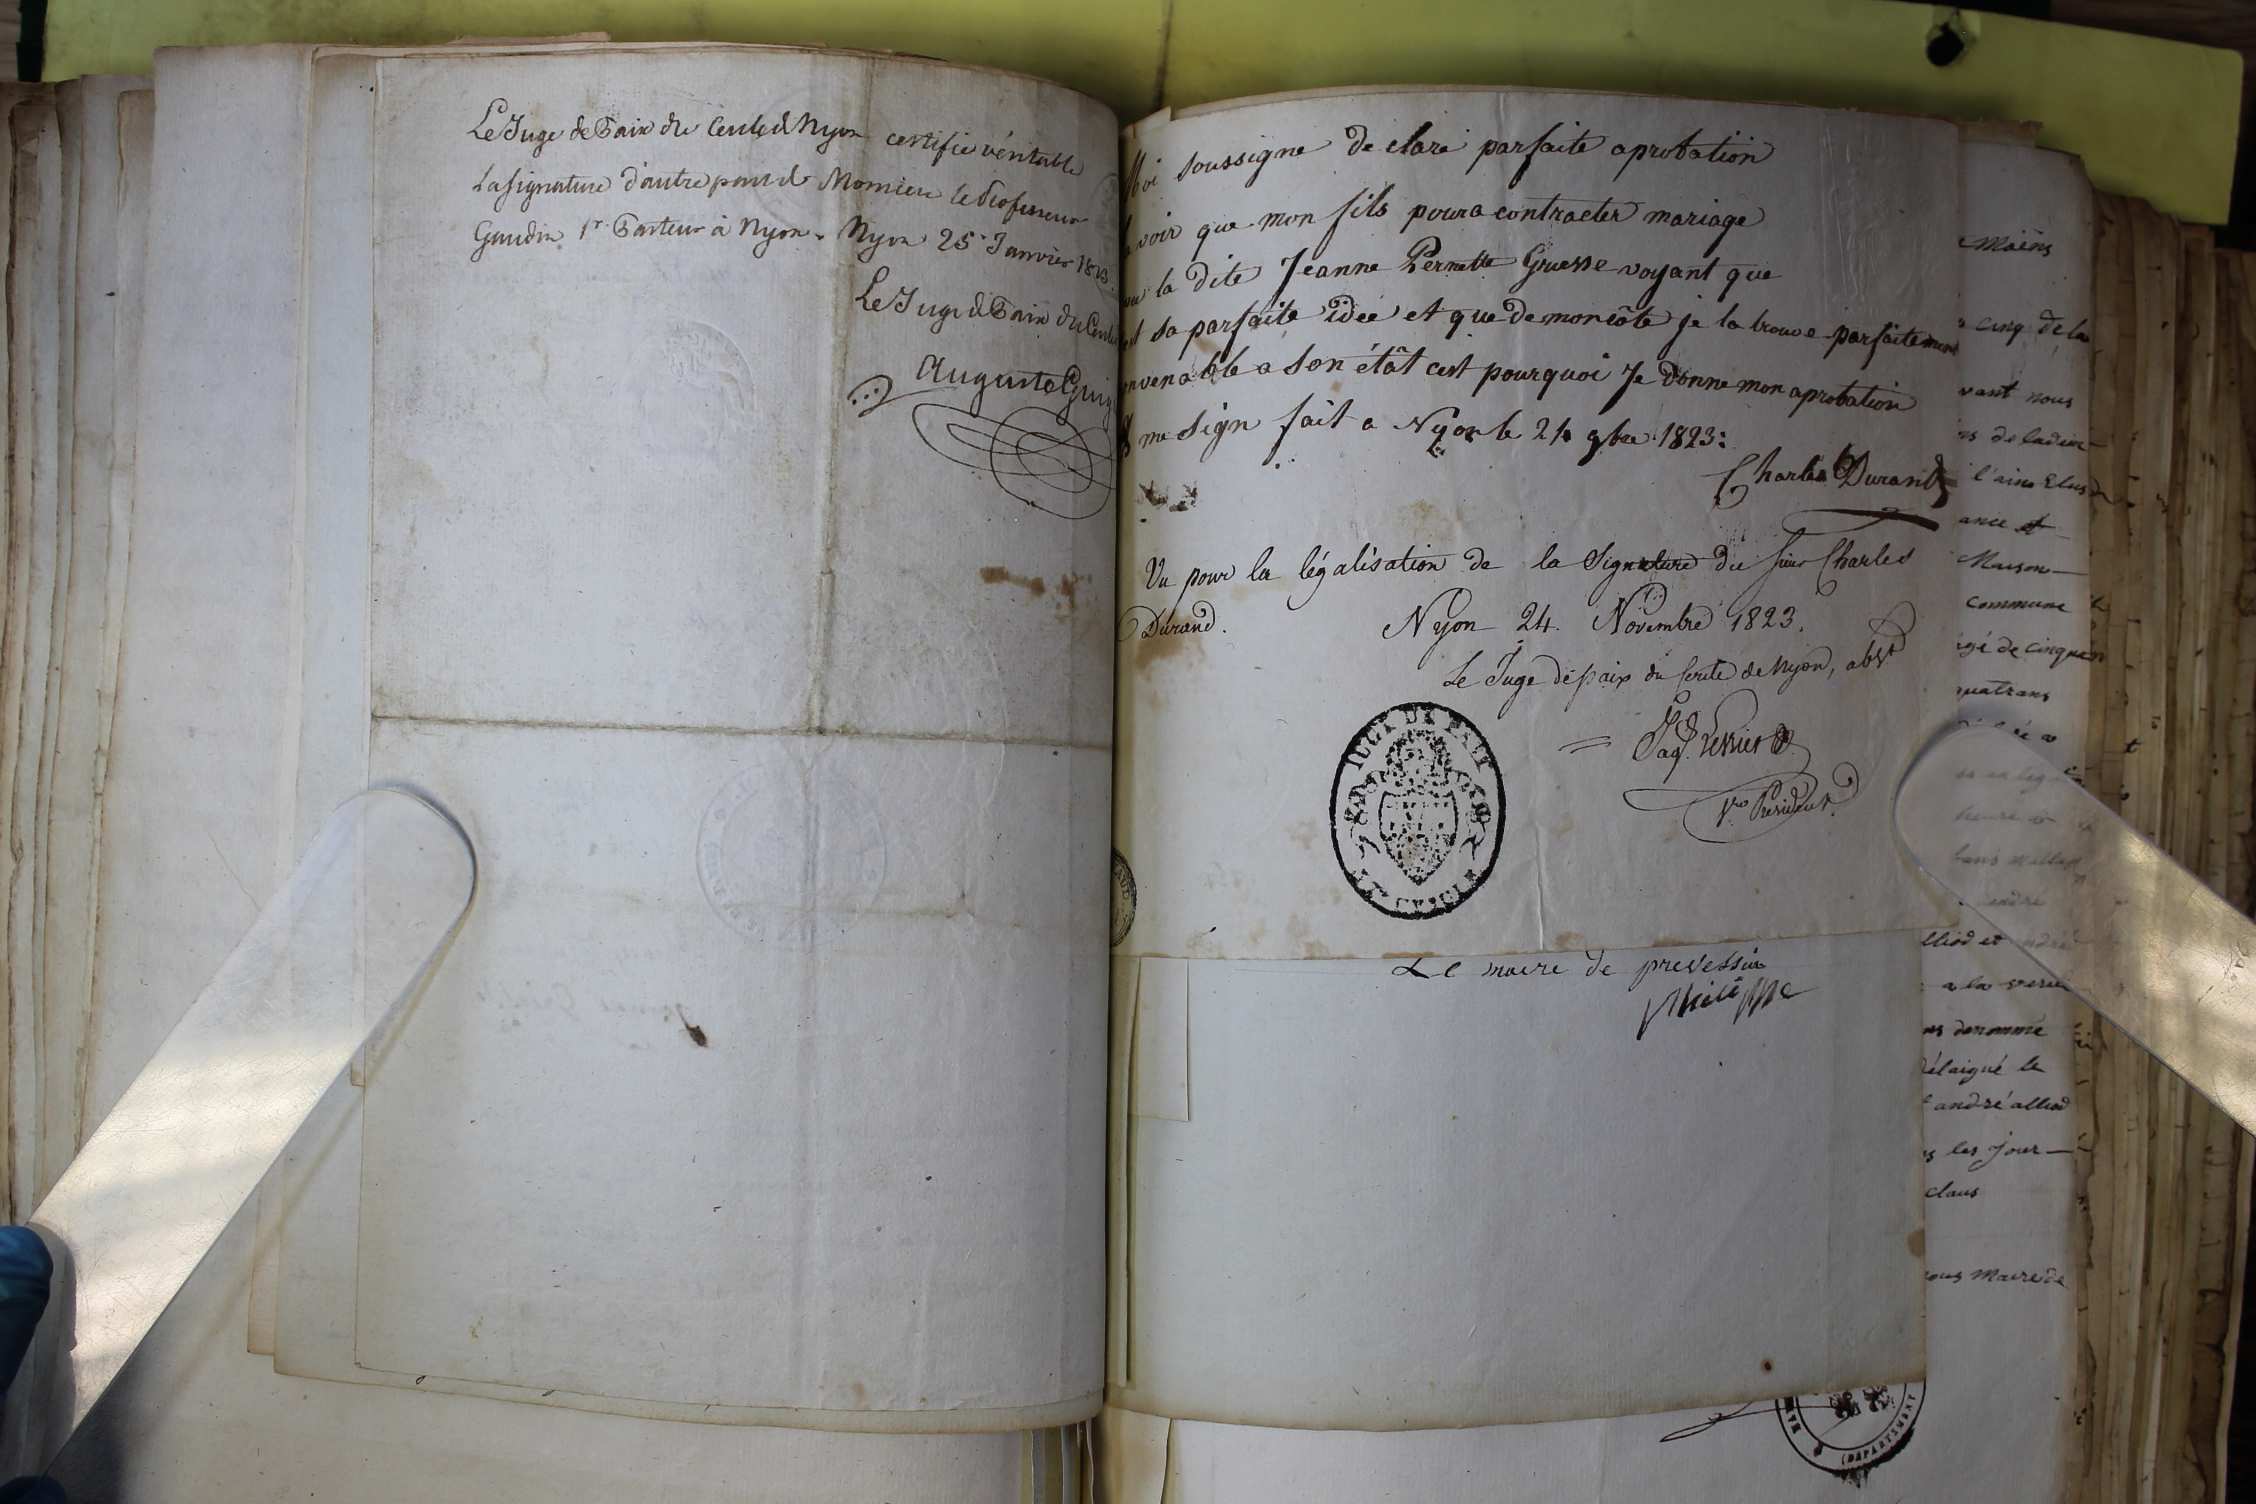 Le Juge de Paix du Cercle de Nyon certifie véritable
la signature d'autre part de Monsieur le Professeur
Gaudin 1r. Pasteur à Nyon. Nyon 25. Janvier
Le Juge de Paix du Cercle
Auguste
Moi soussigne de clare parfaite aprobation
voir que mon fils poura contracter mariage
la dite Jeanne Pernette Gruesse voyant que
sa parfaite idée et que de mon côte je la trouve parfaitement
onvenable a son étât cest pourquoi Je donne mon aprobation
me sign fait a Nyon le 24 9bre 1823:
Charles Durand
Vu pour la légalisation de la Signature du Sieur Charles
Durand.
Nyon 24. Novembre 1823.
Le Juge de paix du Cercle de Nyon, abst
Vice Président.
JUGE DE PAIX
Le maire de prevessin
philippe
Mains
cinq de la
vant nous
l'aine Elus
ance et
Maison
commune
agé de cinquan
quatrans
heure
lliod et
a la
denommé
andré alliod
les Jour
claus
nous Maire de
DEPARTEMENT